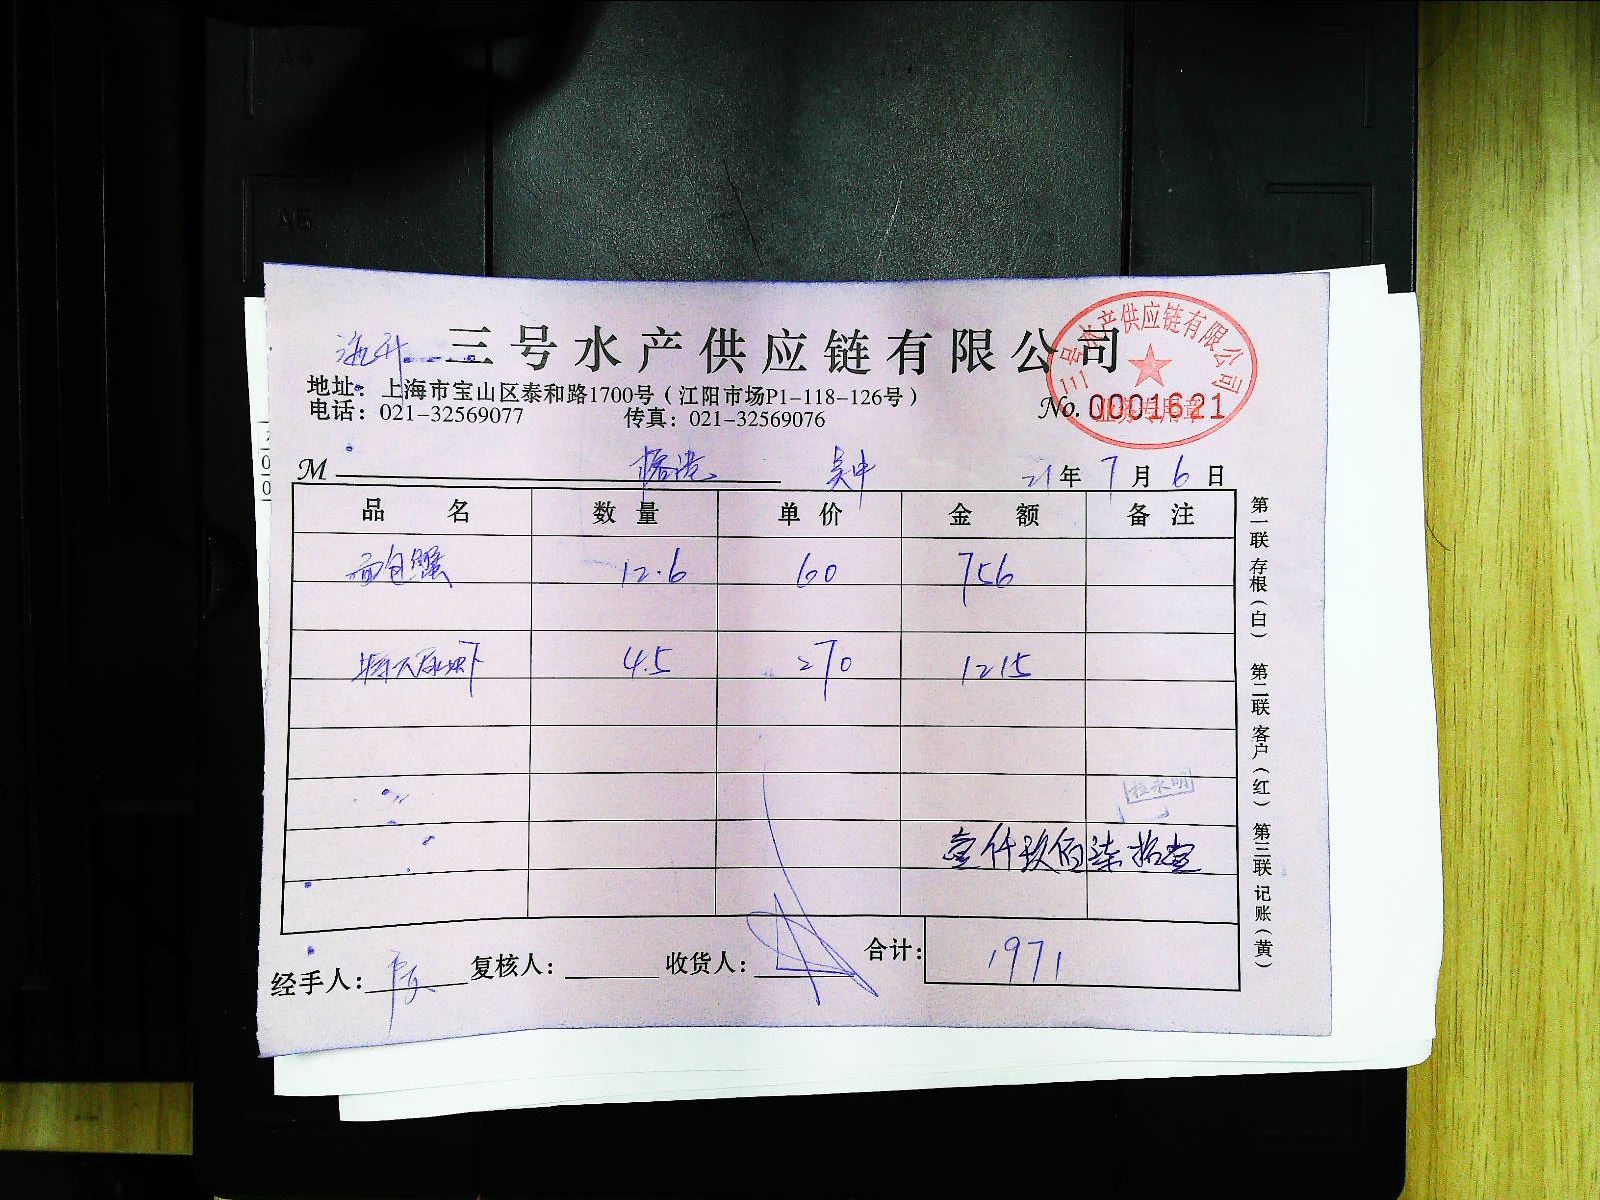 A4
A5
海升 三号水产供应链有限公司
三号水产供应链有限公司
业务专用章
地址：上海市宝山区泰和路1700号（江阳市场P1-118-126号）
电话：021-32569077 传真：021-32569076 No. 0001621
M 吴中 21年7月6日
品名 数量 单价 金额 备注
面包蟹 12.6 60 756
4.5 270 1215
壹仟玖佰柒拾壹
经手人： 复核人： 收货人： 合计：1971
第一联 存根（白） 第二联 客户（红） 第三联 记账（黄）